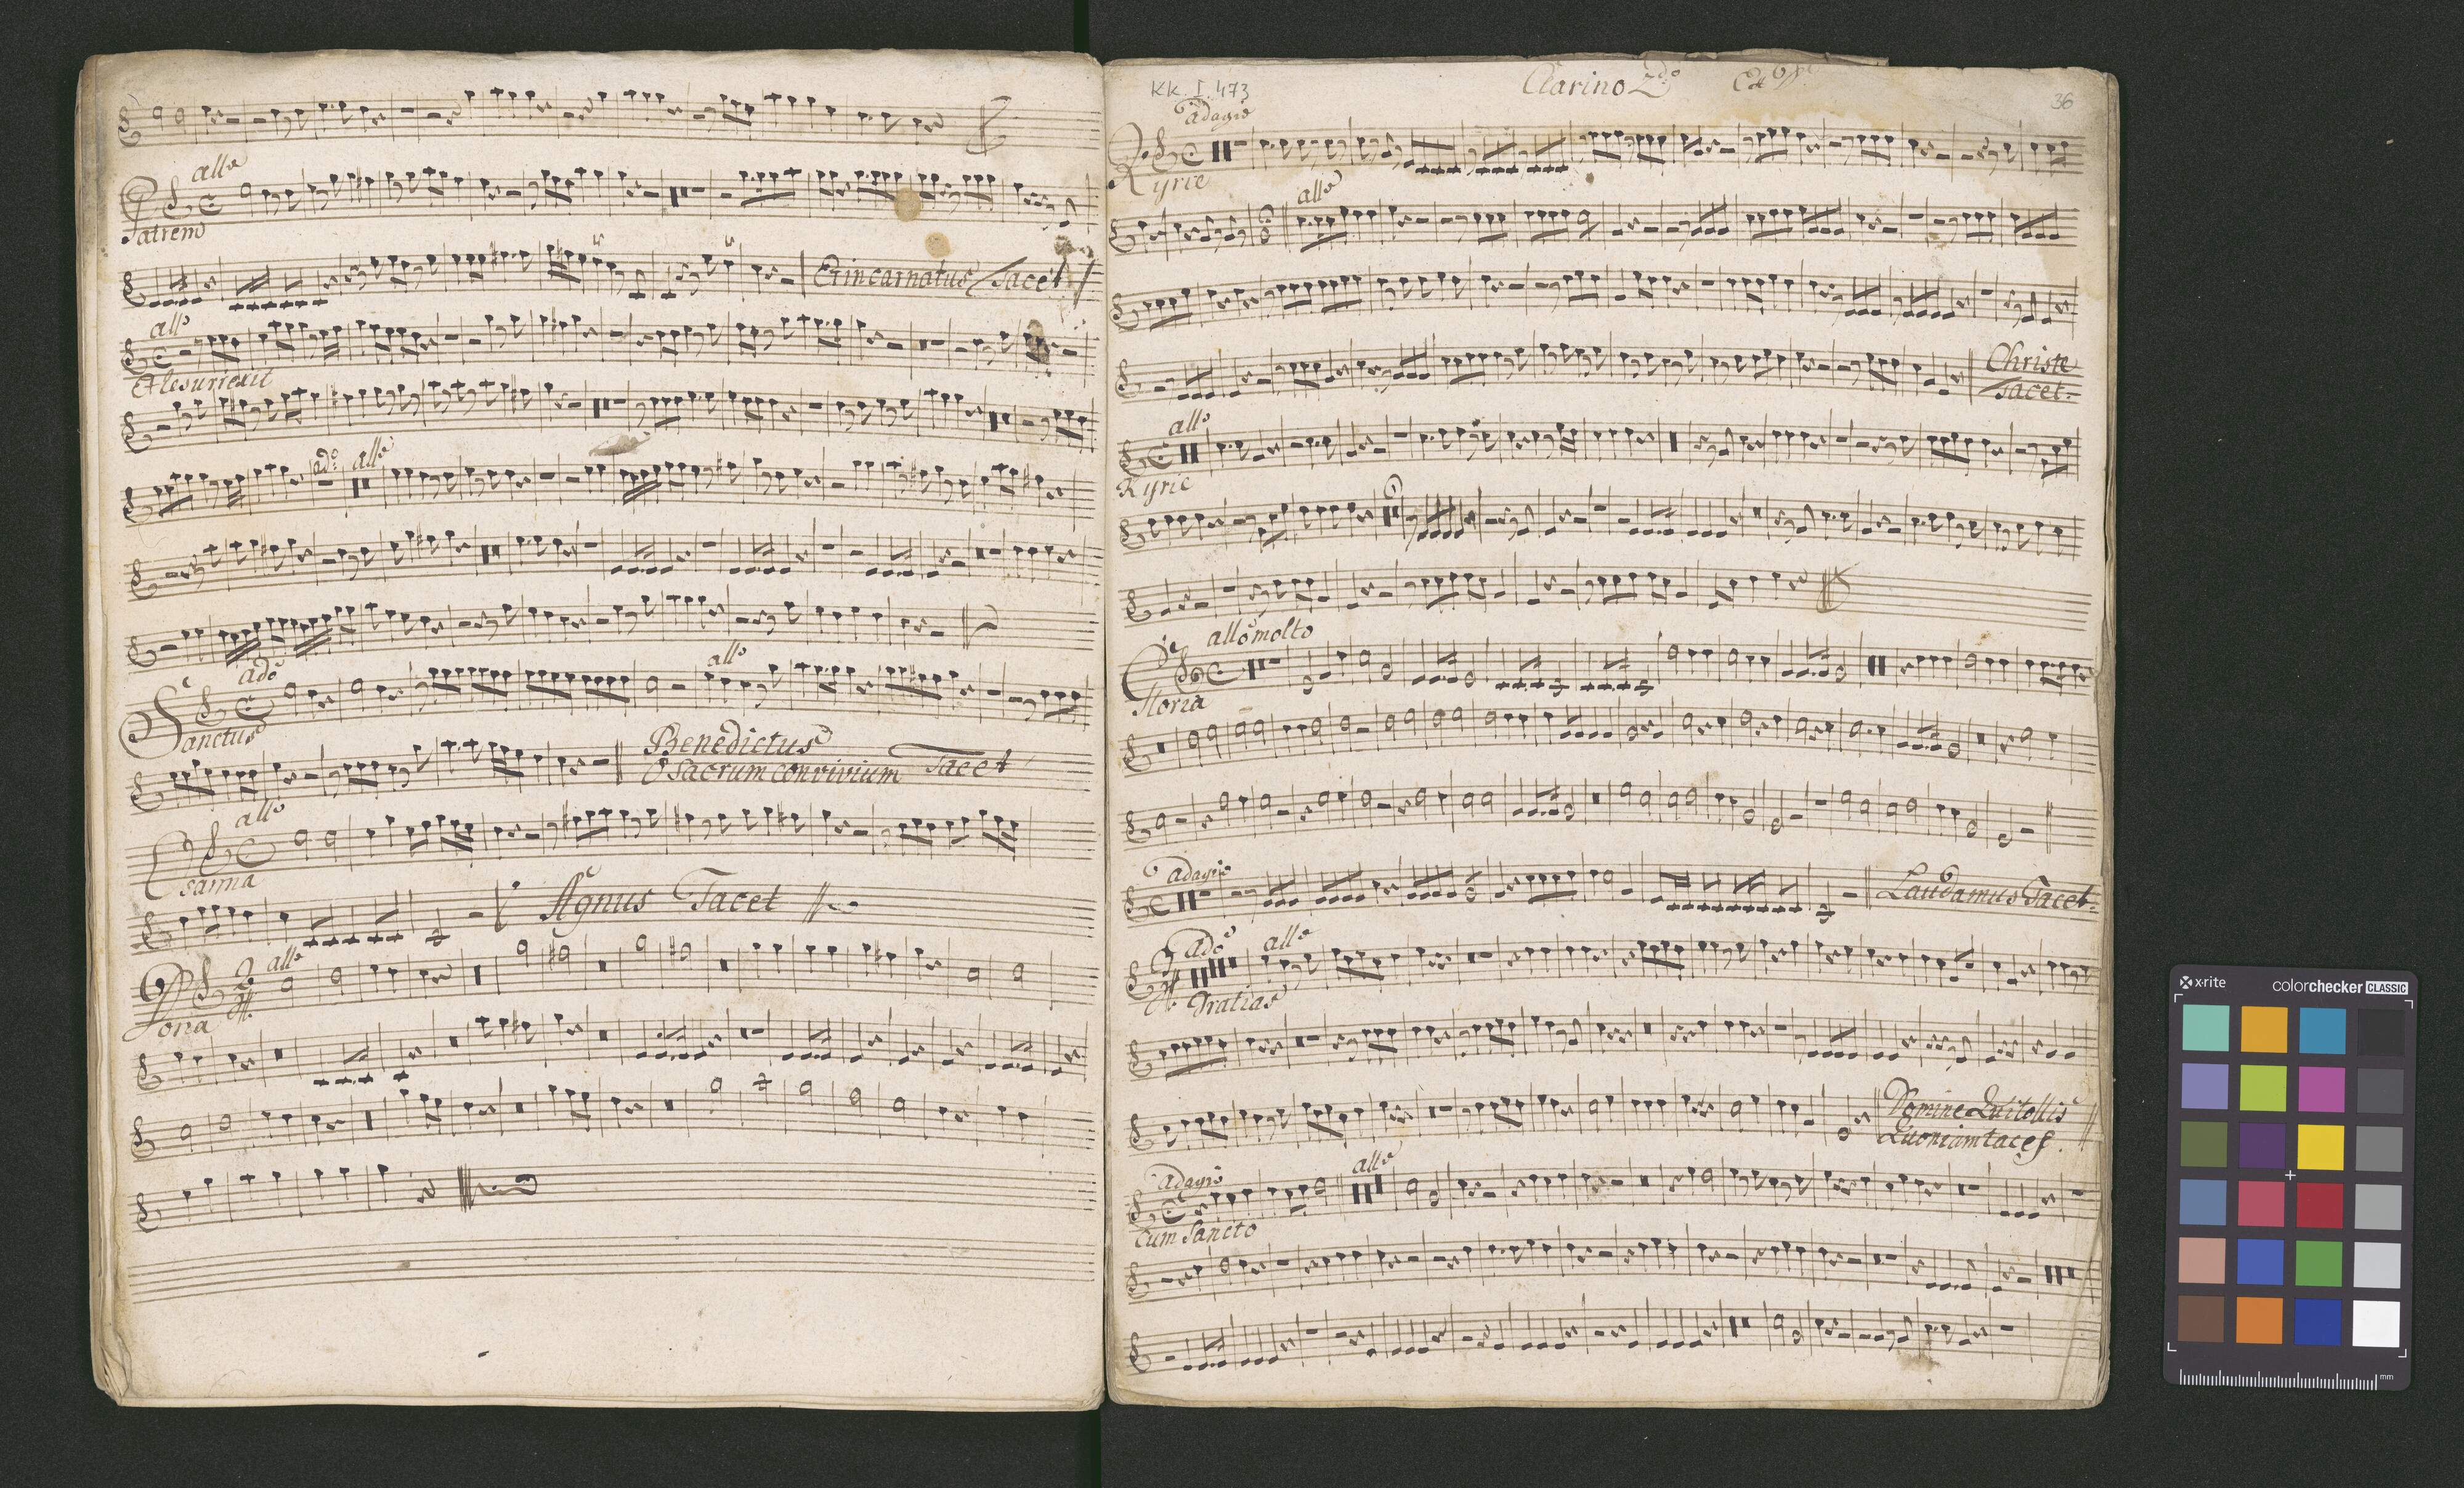 allo
Patrem
Et incarnatus Tacet
allo
Et Resurrexit
ado allo
allo
ado
Sanctus
Benedictus
O Sacrum convivium Tacet
allo
Osanna
Agnus Tacet
allo
2
KK. I. 473
Clarino 2do
36
adagio
Kyrie
allo
Christe
Tacet.
allo
Kyrie
allo molto
Gloria
adagio
Laudamus Tacet
ado allo
Gratias
Domine Qui tollis
Quoniam tacet.
adagio
allo
Cum Sancto
x-rite
colorchecker CLASSIC
mm